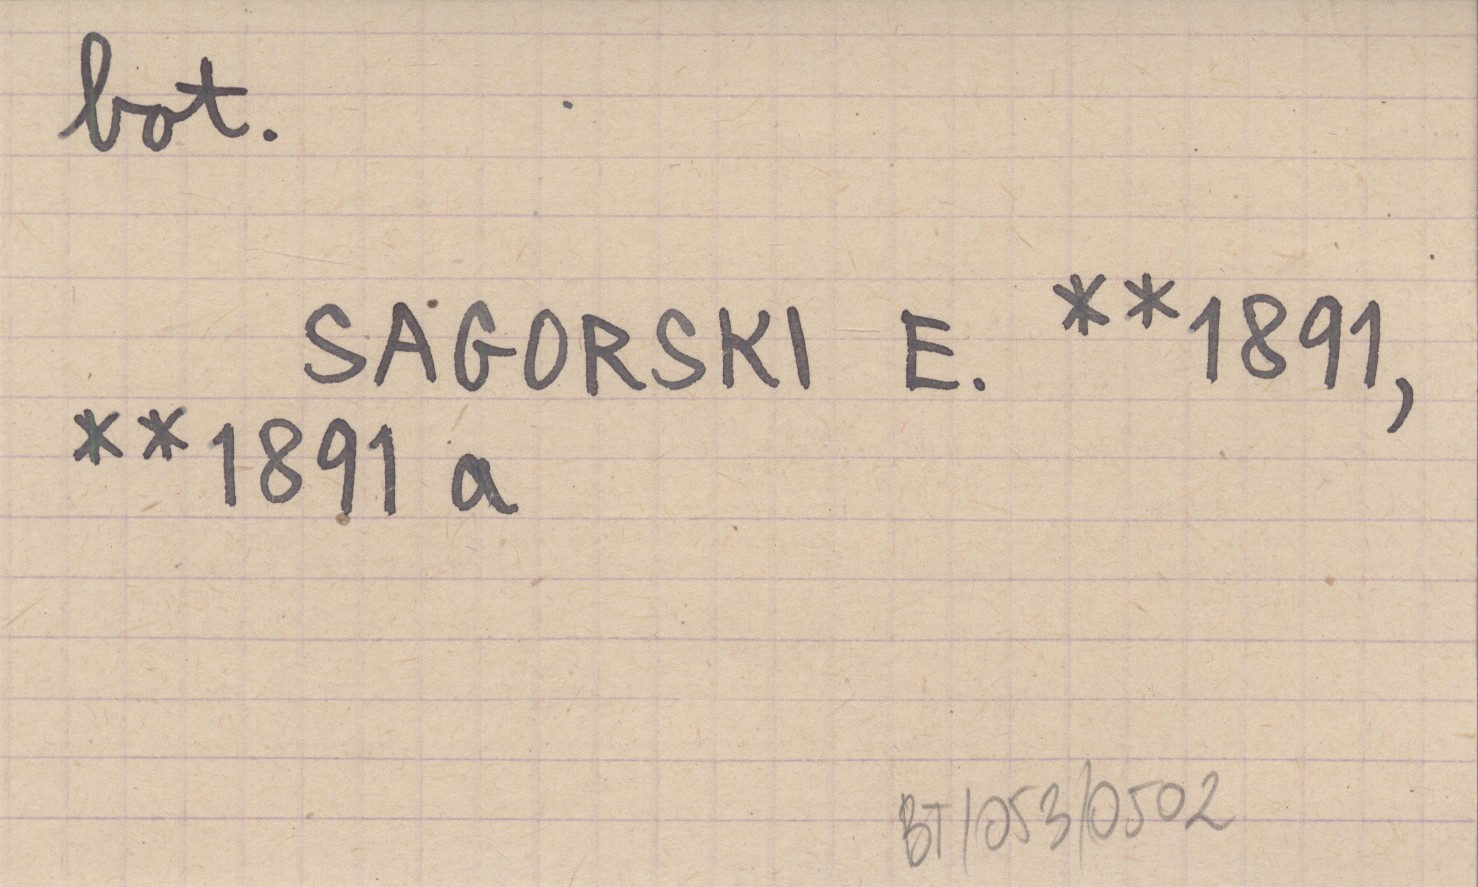 bot.
SAGORSKI E. **1891,
**1891 a
BT/053/0502